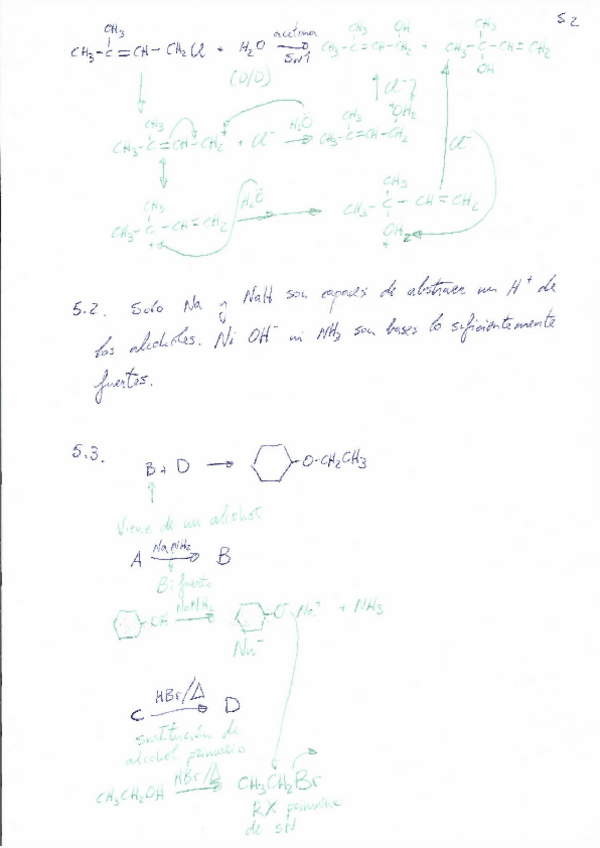 5.2
CH3-C(CH3)=CH-CH2Cl + H2O acetona SN1 CH3-C(CH3)=CH-CH2(OH) + CH3-C(CH3)(OH)-CH=CH2
CH3-C(CH3)=CH-CH2 + Cl- H2O CH3-C(CH3)=CH-CH2 OH2 Cl-
Cl-
CH3-C(CH3)-CH=CH2 + H2O CH3-C(CH3)(OH2+)-CH=CH2
5.2. Solo Na y NaH son capaces de abstraer un H+ de
los alcoholes. Ni OH- ni NH3 son bases lo suficientemente
fuertes.
5.3.
B + D → O-CH2CH3
Viene de un alcohol
A NaNH2 → B
B: fuerte
OH NaNH2 → O- Na+ + NH3
Nu-
C HBr/Δ → D
sustitución de
alcohol primario
CH3CH2OH HBr/Δ → CH3CH2Br
RX primario
de SN